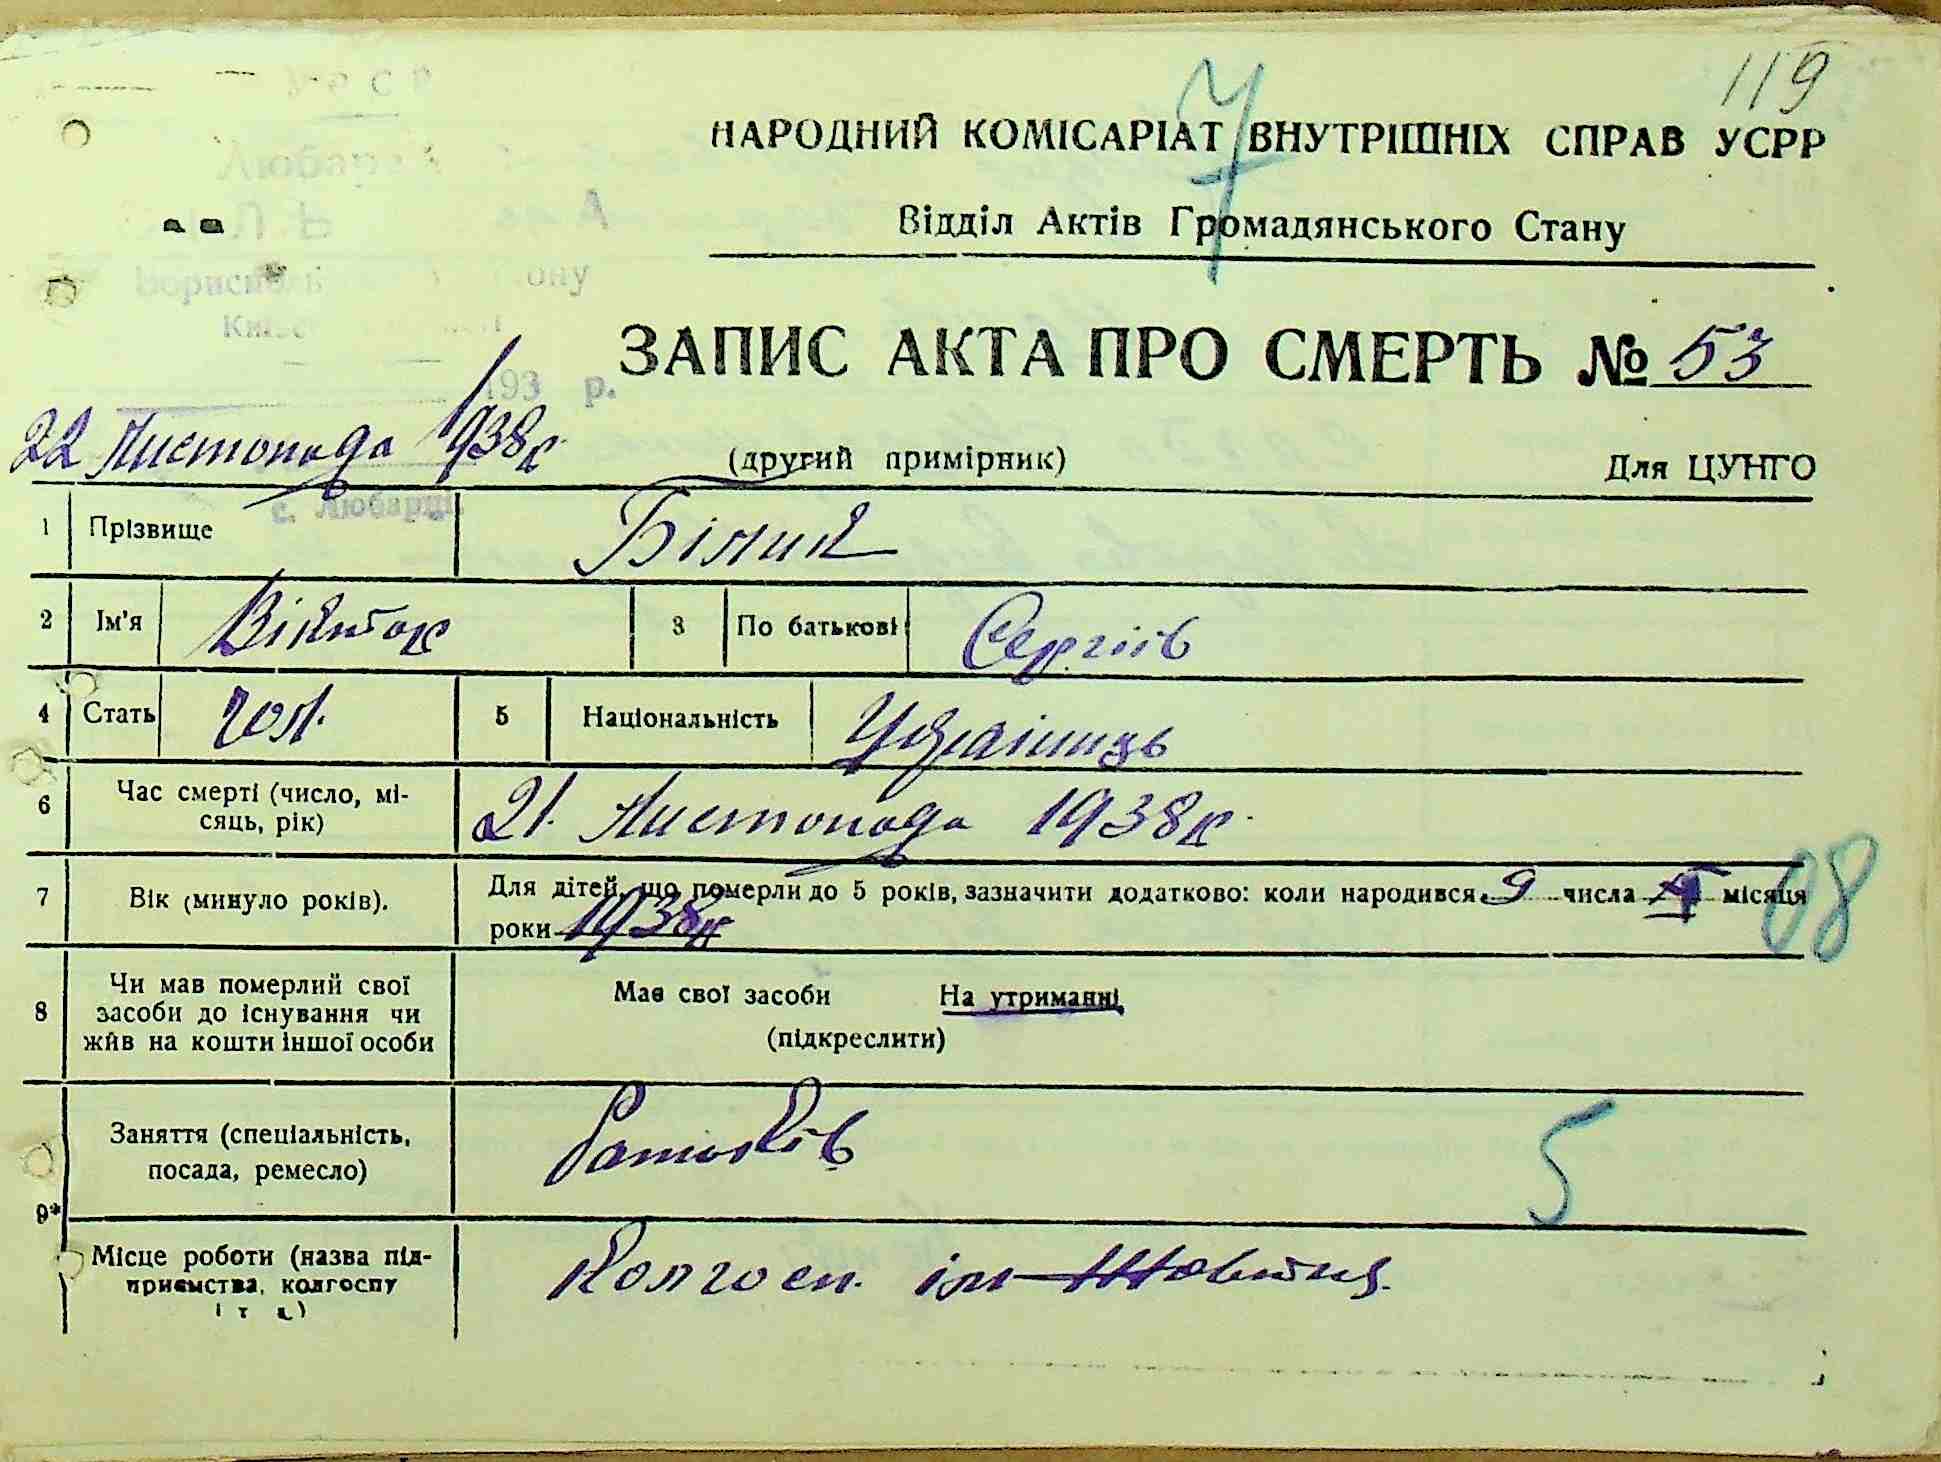 119
7
НАРОДНИЙ КОМІСАРІАТ ВНУТРІШНІХ СПРАВ УСРР
Відділ Актів Громадянського Стану
ЗАПИС АКТА ПРО СМЕРТЬ № 53
193 р.
22 Листопада 1938р.
(другий примірник)
Для ЦУНГО
с. Любарці
1 Прізвище Білик
2 Ім'я Віктор 3 По батькові Сергіїв
4 Стать чол. 5 Національність Українець
6 Час смерті (число, мі-
сяць, рік) 21. Листопада 1938р.
7 Вік (минуло років). Для дітей, що померли до 5 років, зазначити додатково: коли народився 9 числа місяця
роки 1938р
08
8 Чи мав померлий свої
засоби до існування чи
жив на кошти іншої особи
Має свої засоби На утриманні
(підкреслити)
Заняття (спеціальність,
посада, ремесло) 5
9*
Місце роботи (назва під-
приємства, колгоспу
і т. д.) Колгосп. ім Жовтня.